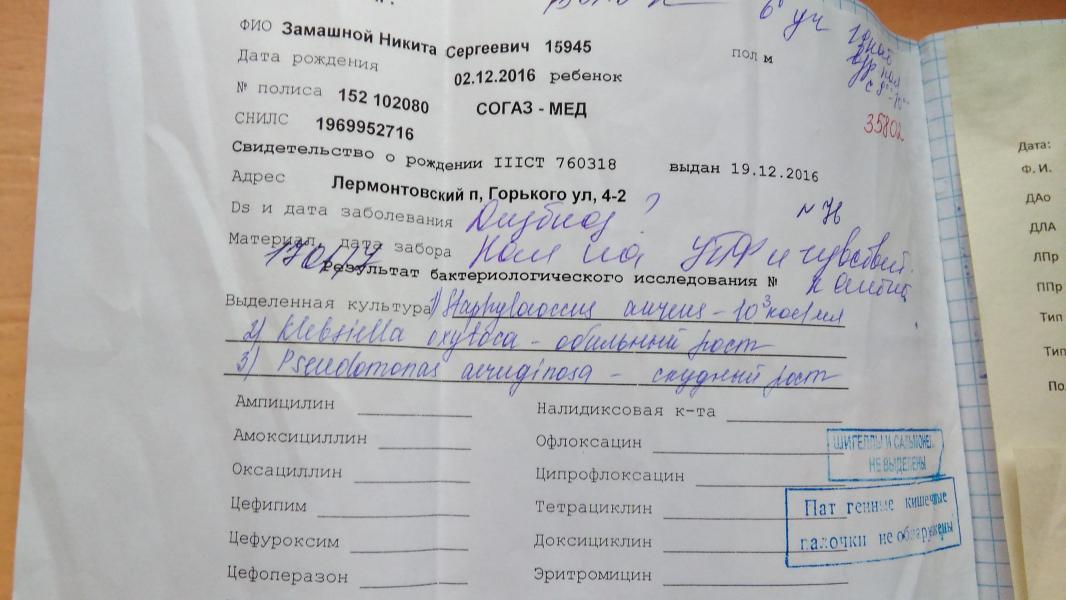 6 уч
ФИО Замашной Никита Сергеевич 15945
пол м
Дата рождения 02.12.2016 ребенок
№ полиса 152 102080 СОГАЗ - МЕД
35802
СНИЛС 1969952716
Свидетельство о рождении IIIСТ 760318 выдан 19.12.2016
Адрес Лермонтовский п, Горького ул, 4-2
Ds и дата заболевания Дисбиоз?
№ 76
Материал, дата забора Кал на УПФ и чувствит.
Результат бактериологического исследования №
Выделенная культура 1) Staphylococcus aureus - 10³ кое/мл
2) Klebsiella oxytoca - обильный рост
3) Pseudomonas aeruginosa - скудный рост
Ампицилин
Налидиксовая к-та
Амоксициллин
Офлоксацин
ШИГЕЛЛЫ И САЛЬМОНЕЛ
НЕ ВЫДЕЛЕНЫ
Оксациллин
Ципрофлоксацин
Цефипим
Тетрациклин
Пат генные кишечные
палочки не обнаружены
Цефуроксим
Доксициклин
Цефоперазон
Эритромицин
Дата:
Ф. И.
ДАо
ДЛА
ЛПр
ППр
Тип
Тип
По